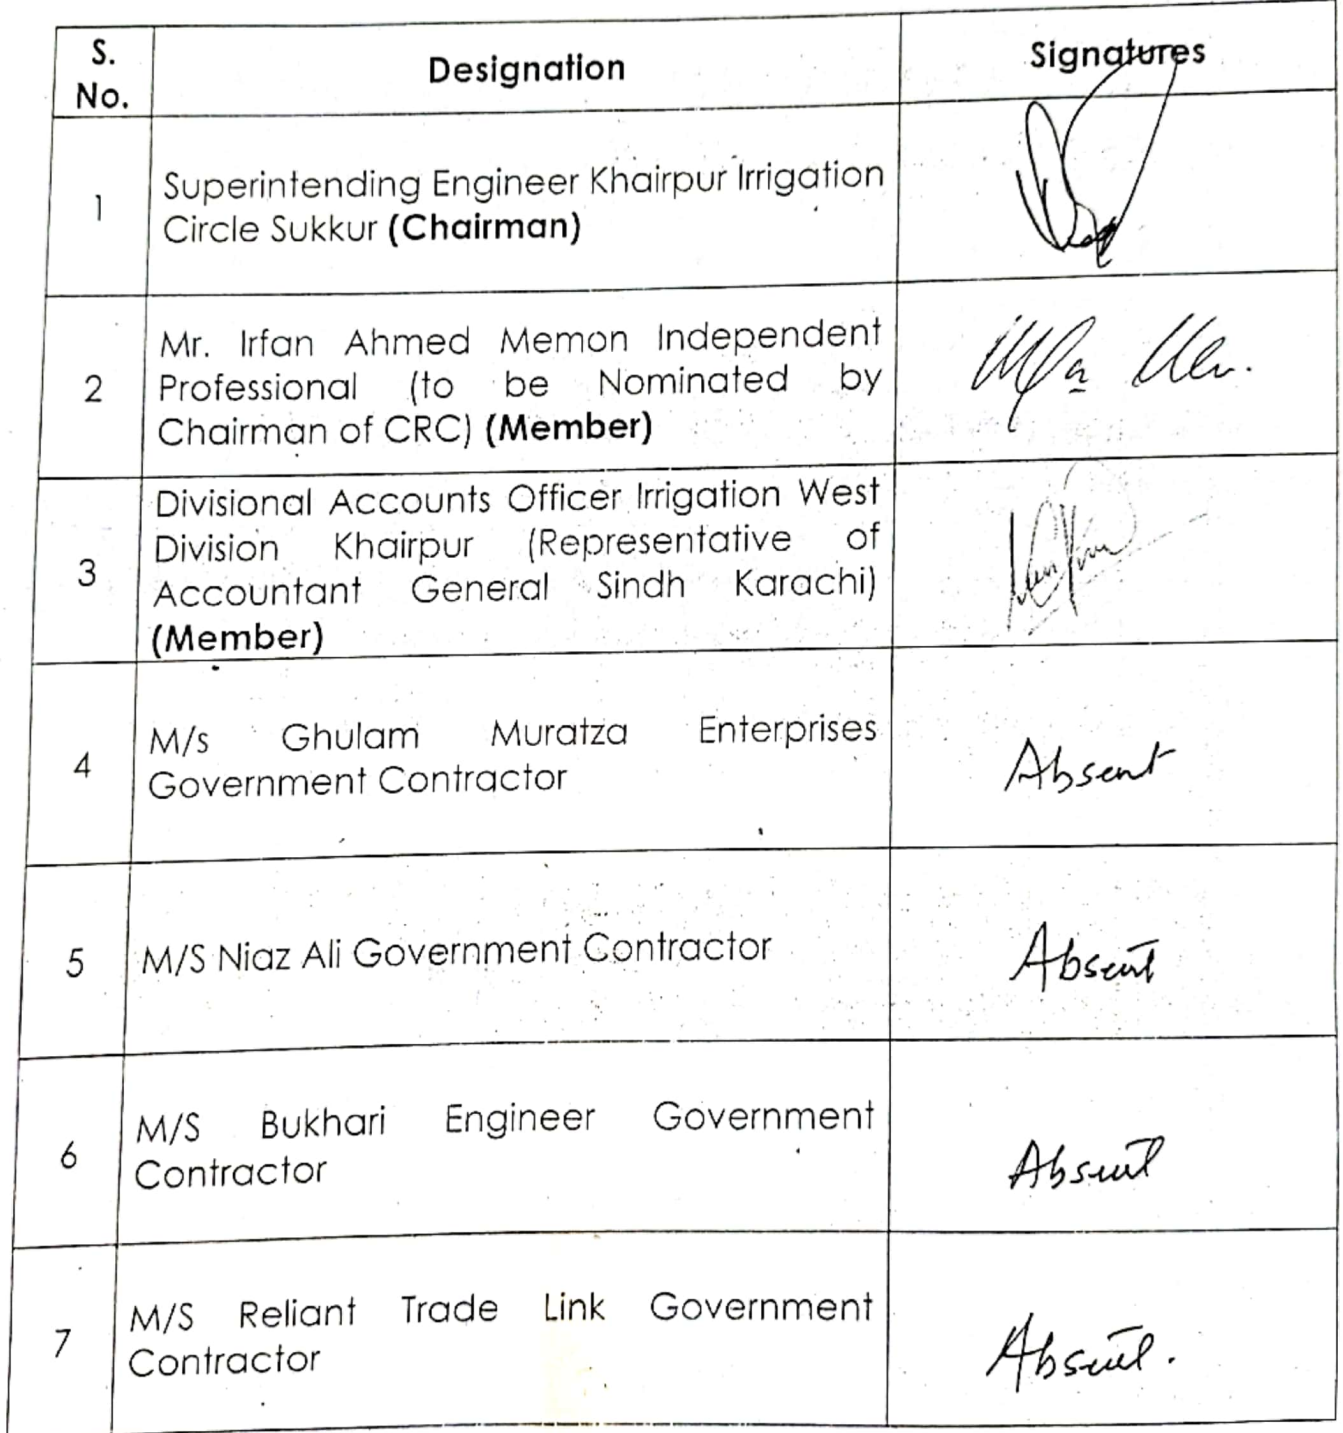 S.
No.
Designation
Signatures
1
Superintending Engineer Khairpur Irrigation
Circle Sukkur (Chairman)
2
Mr. Irfan Ahmed Memon Independent
Professional (to be Nominated by
Chairman of CRC) (Member)
3
Divisional Accounts Officer Irrigation West
Division Khairpur (Representative of
Accountant General Sindh Karachi)
(Member)
4
M/s Ghulam Muratza Enterprises
Government Contractor
Absent
5
M/S Niaz Ali Government Contractor
Absent
6
M/S Bukhari Engineer Government
Contractor
Absent
7
M/S Reliant Trade Link Government
Contractor
Absent.